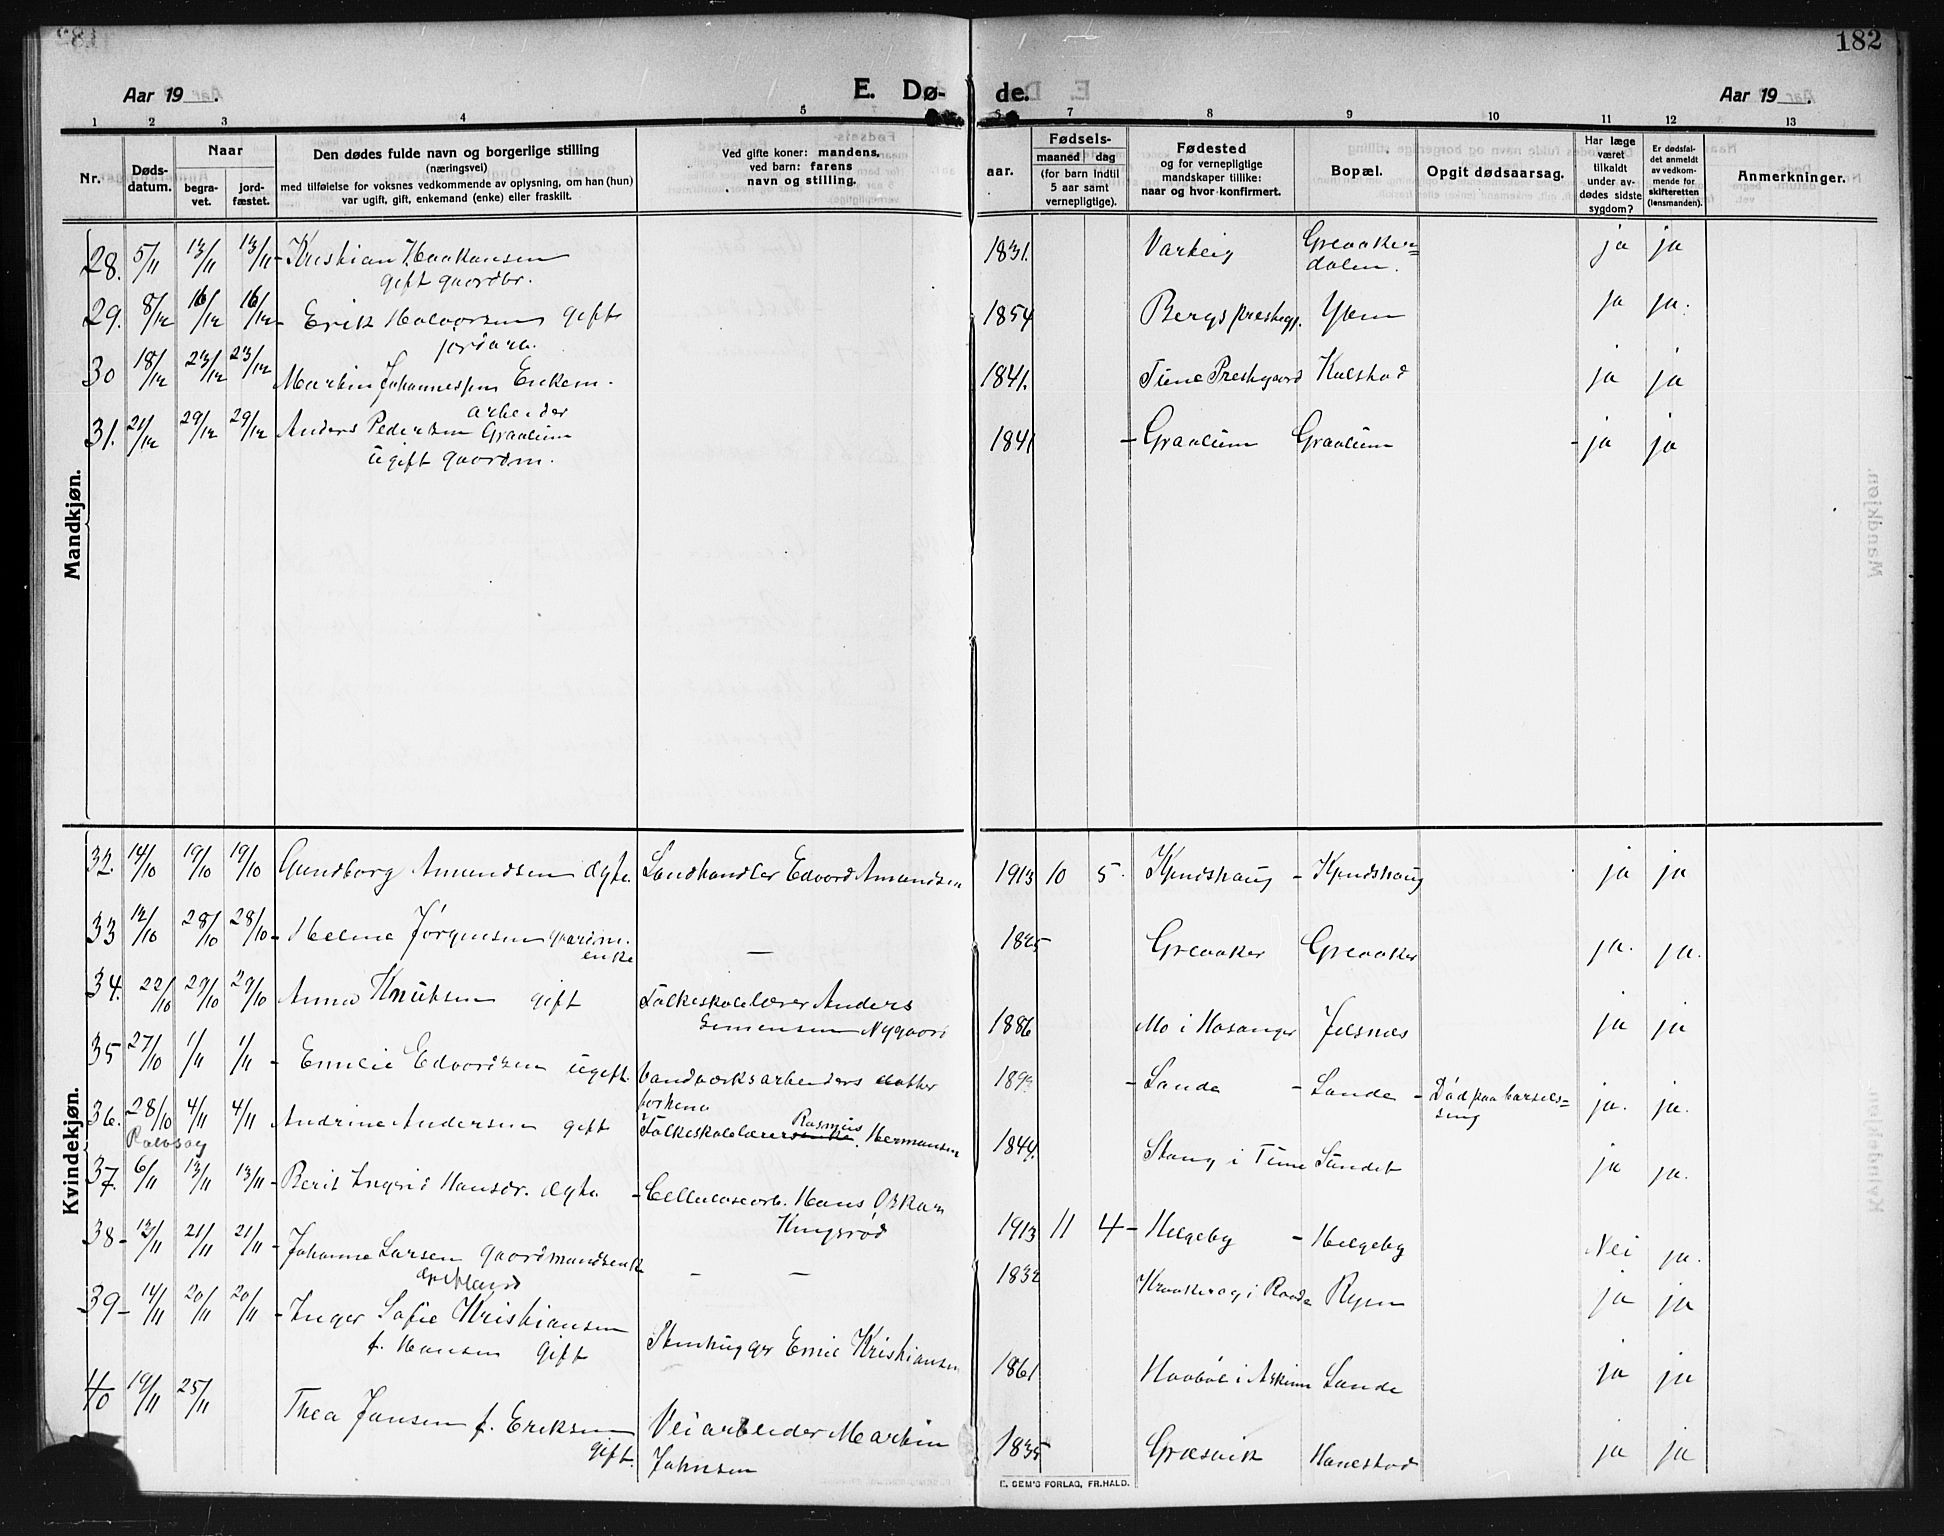 182
Aar 19 .
E. Dø-
de.
Aar 19 .
1 2 3 4 5
6 7 8 9 10 11 12 13
Nr.
Døds-
datum.
Naar
begra-
vet.
jord-
fæstet.
Den dødes fulde navn og borgerlige stilling
(næringsvei)
med tilføielse for voksnes vedkommende av oplysning, om han (hun)
var ugift, gift, enkemand (enke) eller fraskilt.
Ved gifte koner: mandens,
ved barn: farens
navn og stilling.
aar.
Fødsels-
maaned dag
(for barn indtil
5 aar samt
vernepligtige).
Fødested
og for vernepligtige
mandskaper tillike:
naar og hvor konfirmert.
Bopæl.
Opgit dødsaarsag.
Har læge
været
tilkaldt
under av-
dødes sidste
sygdom?
Er dødsfal-
det anmeldt
av vedkom-
mende for
skifteretten
(lensmanden).
Anmerkninger.
Mandkjøn.
28. 5/11 13/11 13/11 - Kristian Haakansen 1831. Varteig Greaaker= ja ja
gift gaardbr. dalen.
29. 8/12 16/12 16/12 - Erik Halvorsen gift 1854 Bergs prestegj. Yven ja ja.
30 18/12 23/12 23/12 Martin Johannessen Enkem. 1841. Tune Prestgaard Kalstad ja ja
arbeider
31. 21/12 29/12 29/12 Anders Pedersen Graalum 1841 - Graalum Graalum - ja ja
ugift gaardm.
Kvindekjøn.
32. 14/10 19/10 19/10 Gundborg Amundsen ægte. Landhandler Edvard Amundsen 1913 10 5. Kjendshaug - Kjendshaug ja ja
33 12/10 28/10 28/10 - Helene Jørgensen gaardm. — 1825 Greaaker Greaaker ja. ja.
enke
34. 22/10 29/10 29/10 Anna Knutsen gift Folkeskolelærer Anders 1886 Mo i Hosanger Jelsnæs ja ja
Simensen Nygaard
35 27/10 1/11 1/11 - Emilie Edvardsen ugift. Vandværksarbeiders datter Sande - Sande - Død paa barsels= ja. ja.
seng
36. 28/10 4/11 4/11 Andrine Andersen gift forhenv. 1844. Stang i Tune Sundet ja ja.
Rolvsøy Folkeskolelærer Rasmus Hermansen
37. 6/11 13/11 13/11 - Berit Ingrid Hansdr. ægte - Cellulosearb. Hans Oskar 1913 11 4 - Helgeby - Helgeby Nei ja.
Kingsrød
38 - 13/11 21/11 21/11 - Johanne Larsen gaardmandsenke — — 1832 Kraakerøy i Raade Ryen ja ja
39 - 14/11 20/11 20/11 - Inger Sofie Kristiansen Stenhugger Emil Kristiansen 1861 Haabøl i Askim Sande ja ja
f. Hansen gift
40 19/11 25/11 Thea Jansen f. Eriksen Veiarbeider Martin 1835 Græsvik Hanestad ja ja
gift. Johnsen
E. SEM'S FORLAG, FR.HALD.